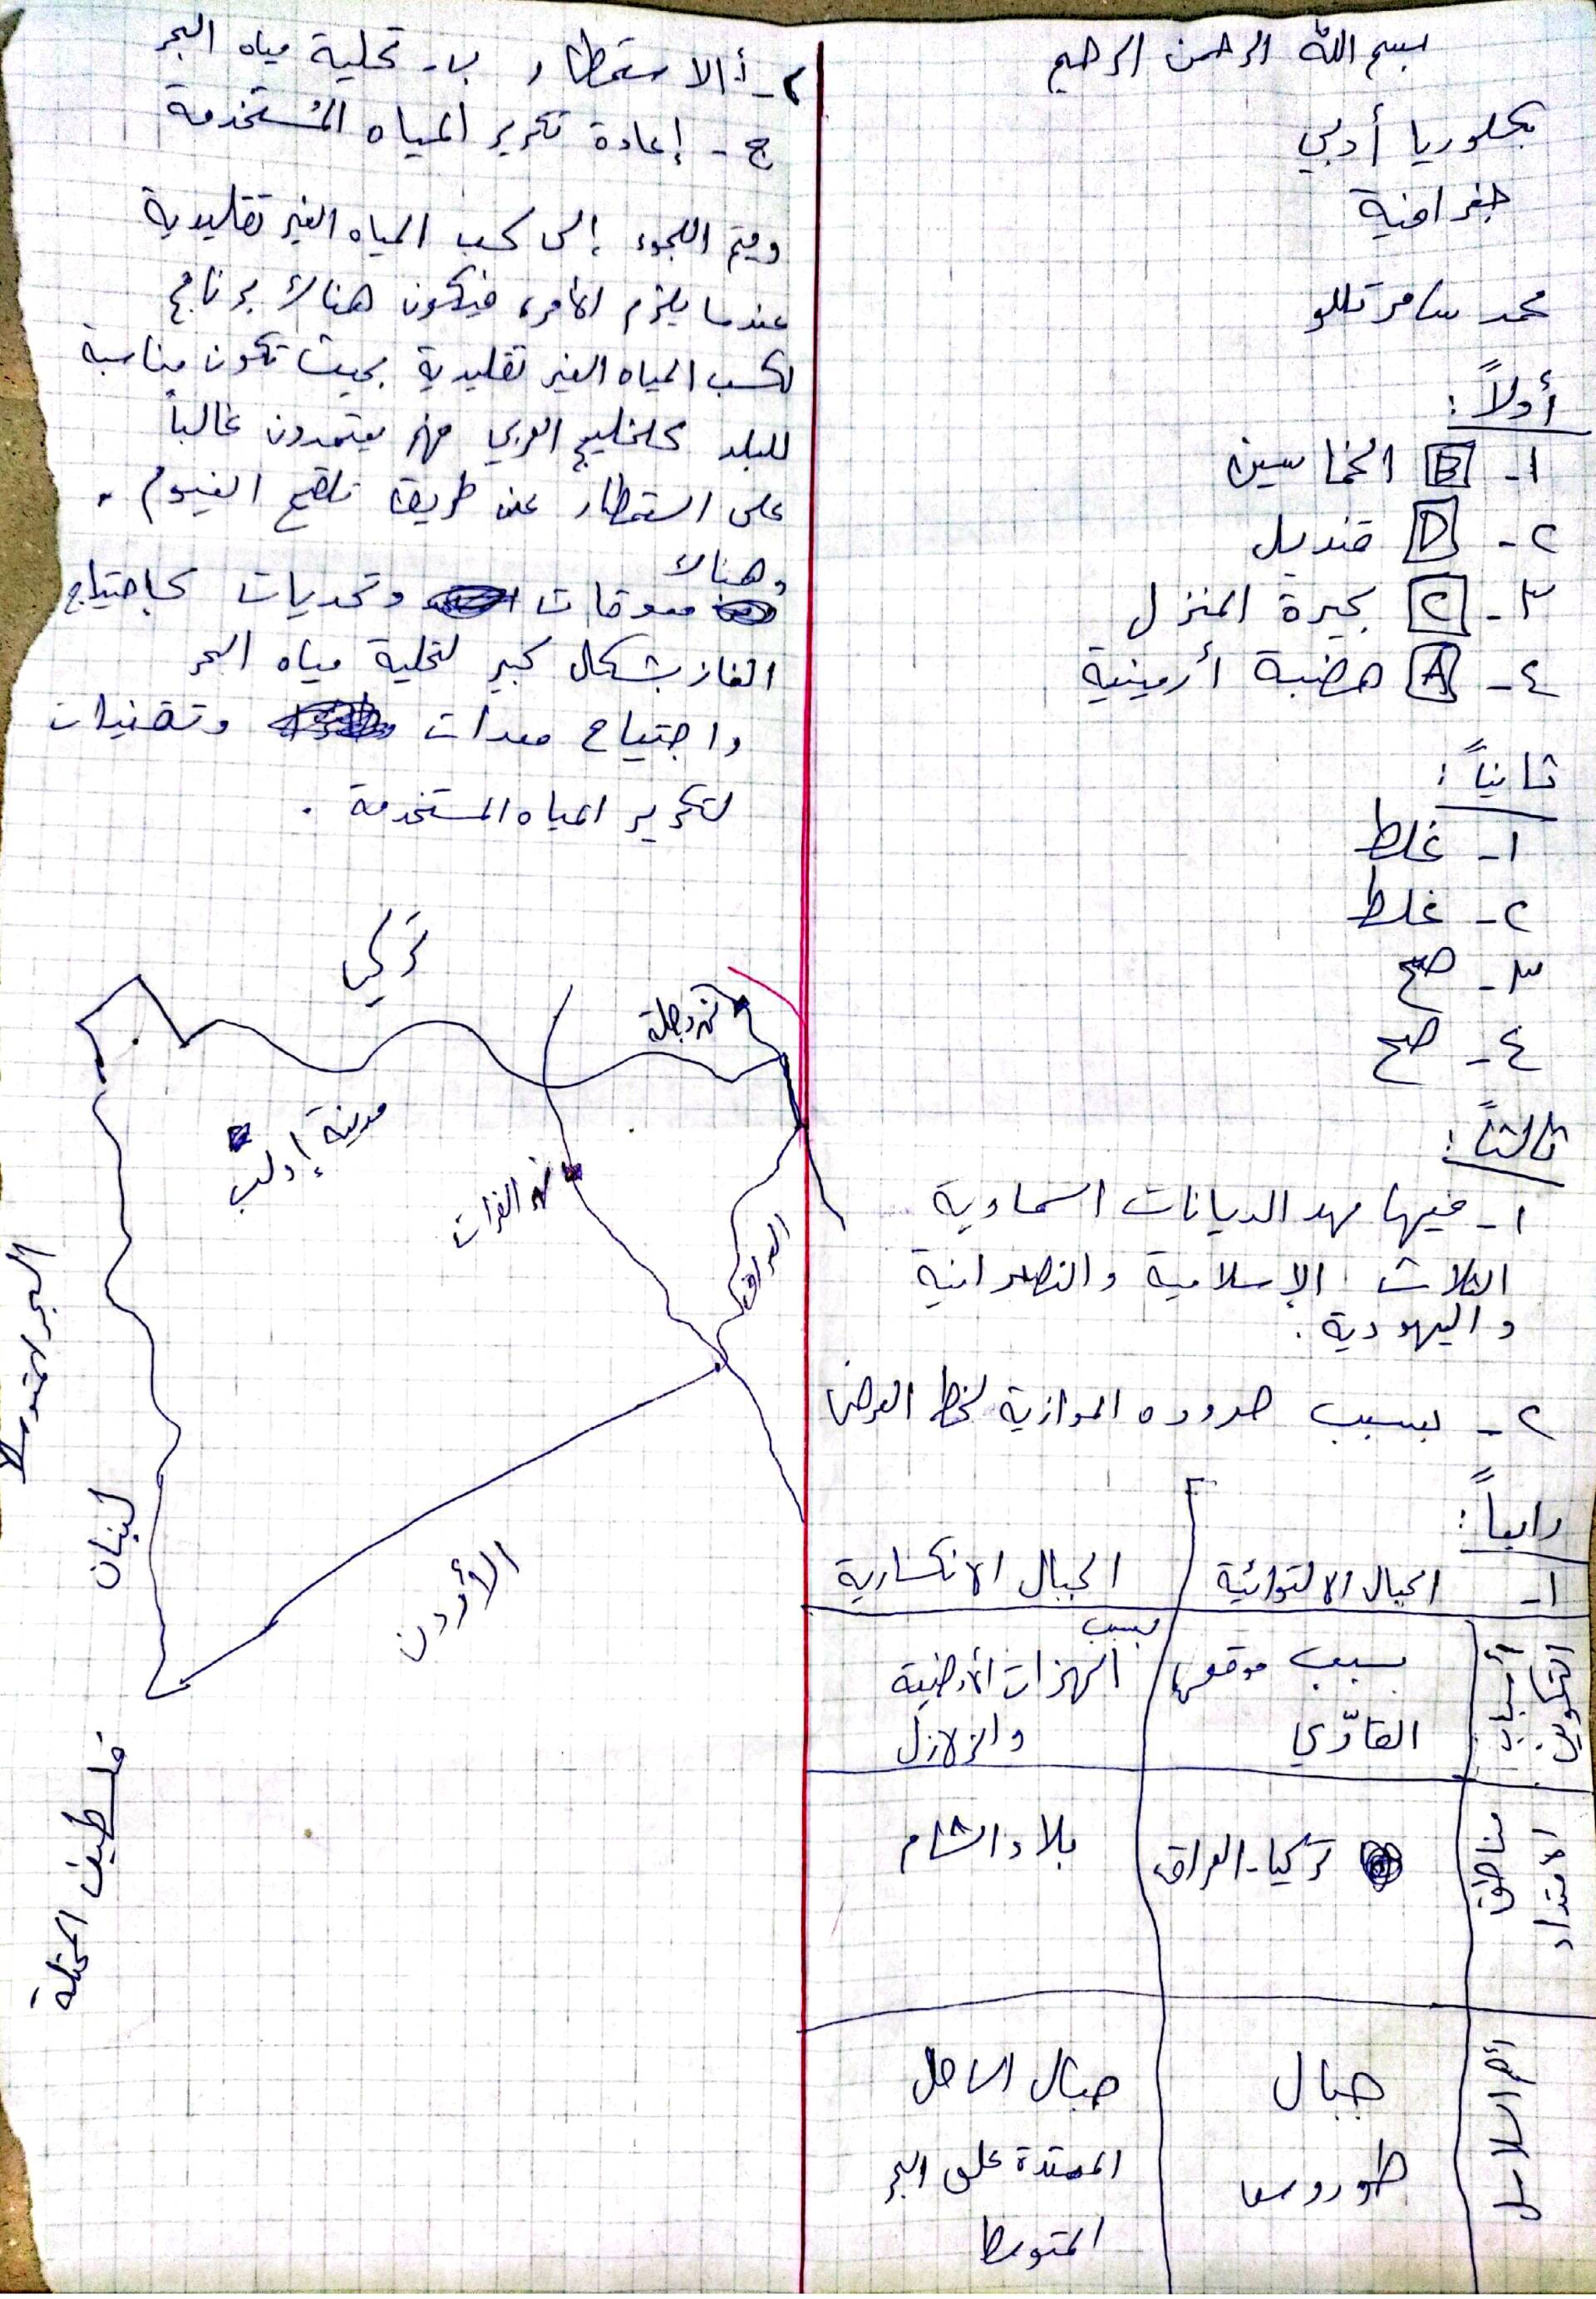 بسم الله الرحمن الرحيم
بكلوريا أدبي
جغرافية
محمد سامر تللو
أولاً :
١- B الخماسين
٢- D قنديل
٣- C بحيرة المنزل
٤- A هضبة أرمينية
ثانياً :
١- غلط
٢- غلط
٣- صح
٤- صح
ثالثاً :
١- فيها مهد الديانات السماوية
الثلاث الإسلامية والنصرانية
واليهودية .
٢- بسبب حدوده الموازية لخط العرض
رابعاً :
١- الجبال الالتوائية الجبال الانكسارية
أسباب التكوين بسبب موقعها القارّي بسبب الهزات الأرضية والزلازل
مناطق الامتداد تركيا - العراق بلاد الشام
أهم السلاسل جبال طوروس جبال الساحل الممتدة على البحر المتوسط
٢- أ الاستمطار ب- تحلية مياه البحر
ج - إعادة تكرير المياه المُستخدمة
ويتم اللجوء إلى كسب المياه الغير تقليدية
عندما يلزم الأمر، فيكون هناك برنامج
لكسب المياه الغير تقليدية بحيث تكون مناسبة
للبلد كالخليج العربي فهم يعتمدون غالباً
على استمطار عن طريق تلقيح الغيوم .
وهناك
معوقات وتحديات كاحتياج
الغاز بشكل كبير لتحلية مياه البحر
واحتياج معدات وتقنيات
لتكرير المياه المستخدمة .
تركي
نهر دجلة
مدينة إدلب
نهر الفرات
العراق
البحر المتوسط
لبنان
الأردن
فلسطين المحتلة